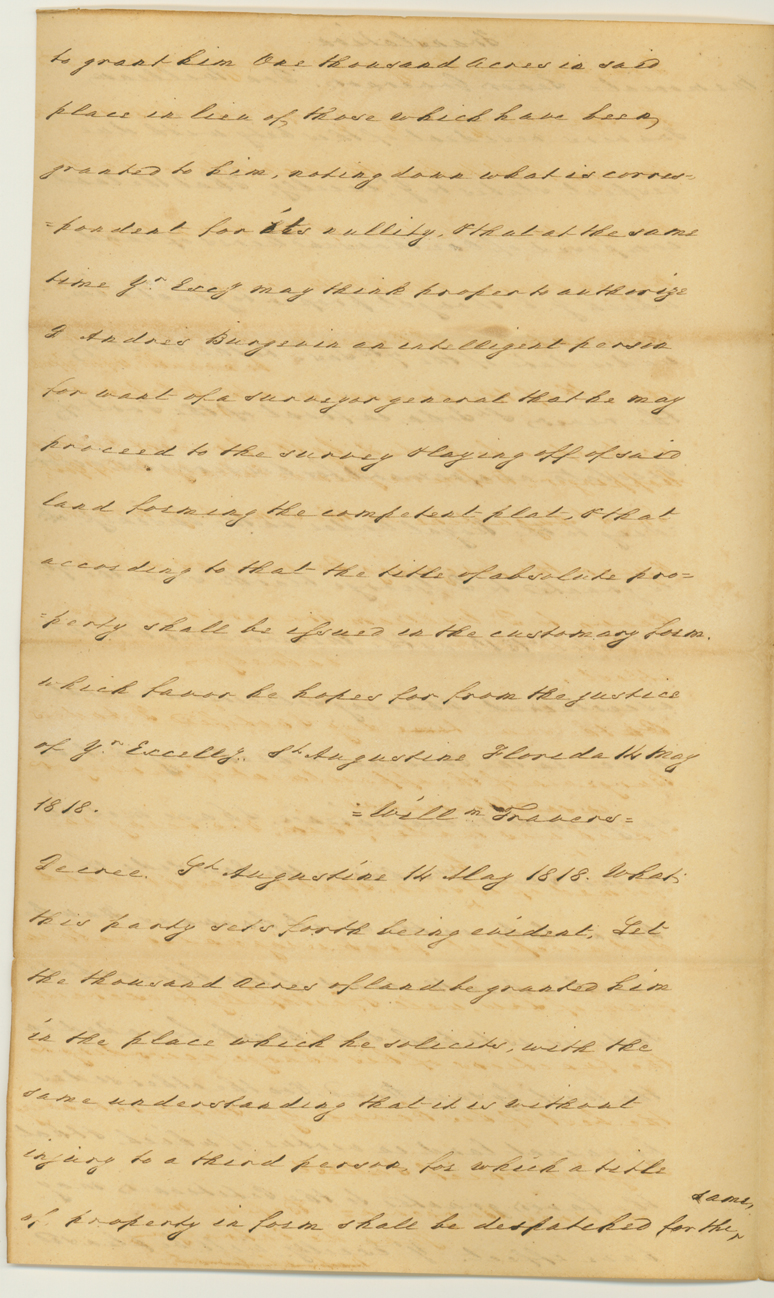 to grant him One thousand Acres in said
place in lieu of, those which have been,
granted to him, noting down what is corres=
=pondent for its nullity, & that at the same
time Yr. Excy may think proper to authorize
D Andres Burgevin an intelligent person
for want of a surveyor general that he may
proceed to the survey & laying off of said
land forming the competent plat, & that
according to that the title of absolute pro=
=perty shall be issued in the customary form.
which favor he hopes for from the justice
of Yr. Excelly. St. Augustine Florida 14 May
1818. =Willm Travers=
Decree. St. Augustine 14 May 1818. What
this party sets forth being evident, Let
the thousand Acres of land be granted him
in the place which he solicits, with the
same understanding that it is without
injury to a third person, for which a title
same,
of property in form shall be despatched for the